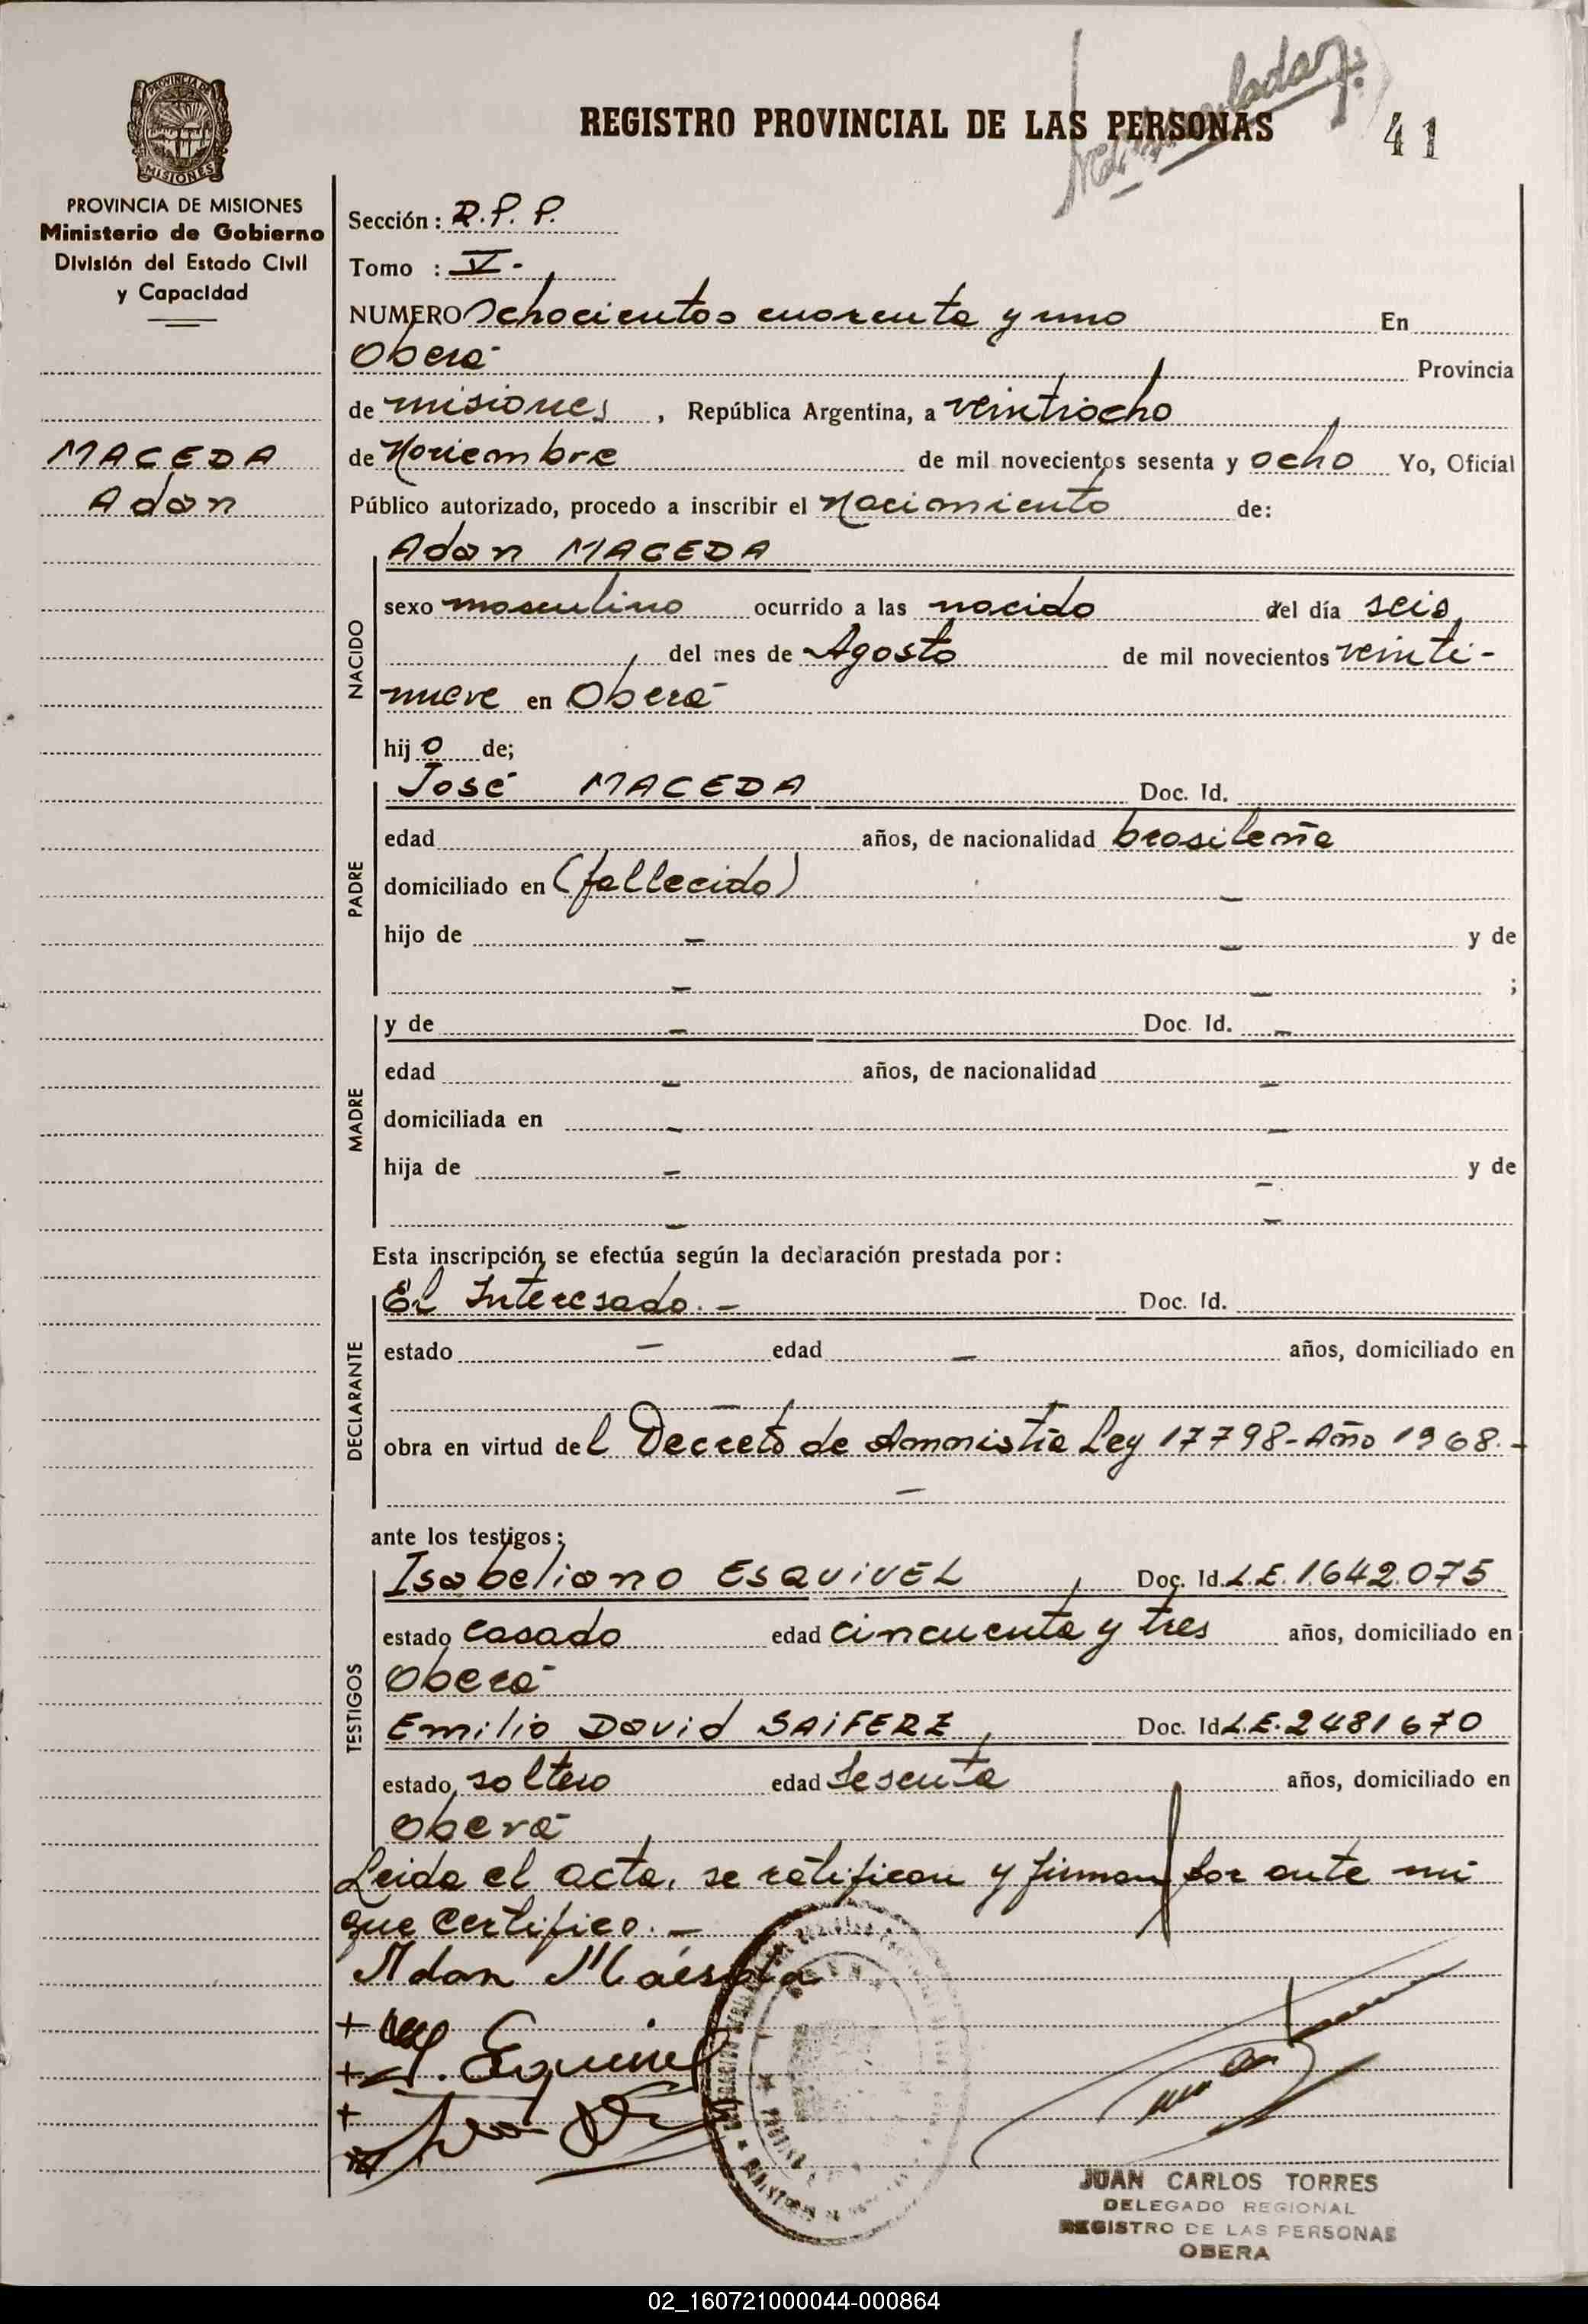 REGISTRO PROVINCIAL DE LAS PERSONAS
41
PROVINCIA DE MISIONES
Ministerio de Gobierno
División del Estado Civil
y Capacidad
MACEDA
Adan
Sección: R.P.P.
Tomo : V.-
NUMERO Ochocientos cuarenta y uno En
Oberá Provincia
de misiones, República Argentina, a veintiocho
de Noviembre de mil novecientos sesenta y ocho Yo, Oficial
Público autorizado, procedo a inscribir el Nacimiento de:
NACIDO
Adan MACEDA
sexo masculino ocurrido a las nacido del día seis
del mes de Agosto de mil novecientos veinti-
nueve en Oberá
hijo de;
PADRE
José MACEDA Doc. Id.
edad años, de nacionalidad brasileña
domiciliado en (fallecido) –
hijo de – – y de
– – ;
MADRE
y de – Doc. Id. –
edad – años, de nacionalidad –
domiciliada en – –
hija de – – y de
– –
Esta inscripción se efectúa según la declaración prestada por:
DECLARANTE
El Interesado.– Doc. Id.
estado – edad – años, domiciliado en
–
obra en virtud del Decreto de Amnistía Ley 17798-Año 1968.-
–
ante los testigos:
TESTIGOS
Isabeliano ESQUIVEL Doc. Id. L.E. 1.642.075
estado casado edad cincuenta y tres años, domiciliado en
Oberá
Emilio David SAIFERZ Doc. Id L.E. 2481670
estado soltero edad sesenta años, domiciliado en
Oberá
Leida el acta, se ratifican y firman por ante mi
que certifico.–
Adan
+
+ Esquivel
+
JUAN CARLOS TORRES
DELEGADO REGIONAL
REGISTRO DE LAS PERSONAS
OBERA
02_160721000044-000864